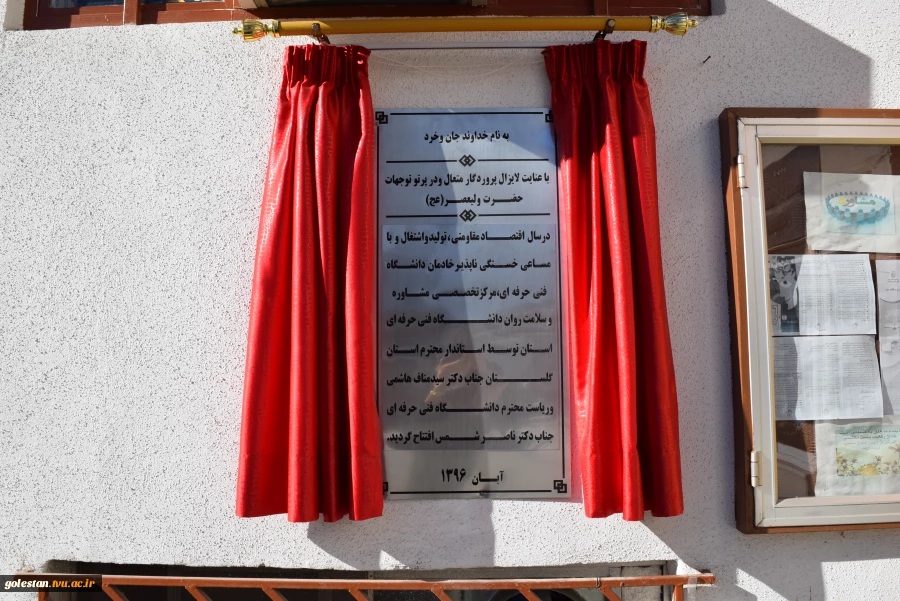 به نام خداوند جان وخرد
با عنایت لایزال پروردگار متعال ودر پرتو توجهات
حضرت ولیعصر(عج)
درسال اقتصاد مقاومتی،تولیدواشتغال و با
مساعی خستگی ناپذیرخادمان دانشگاه
فنی حرفه ای،مرکزتخصصی مشاوره
و سلامت روان دانشگاه فنی حرفه ای
استان توسط استاندار محترم استان
گلستان جناب دکتر سیدمناف هاشمی
وریاست محترم دانشگاه فنی حرفه ای
جناب دکتر ناصر شمس افتتاح گردید.
آبان ۱۳۹۶
golestan.tvu.ac.ir